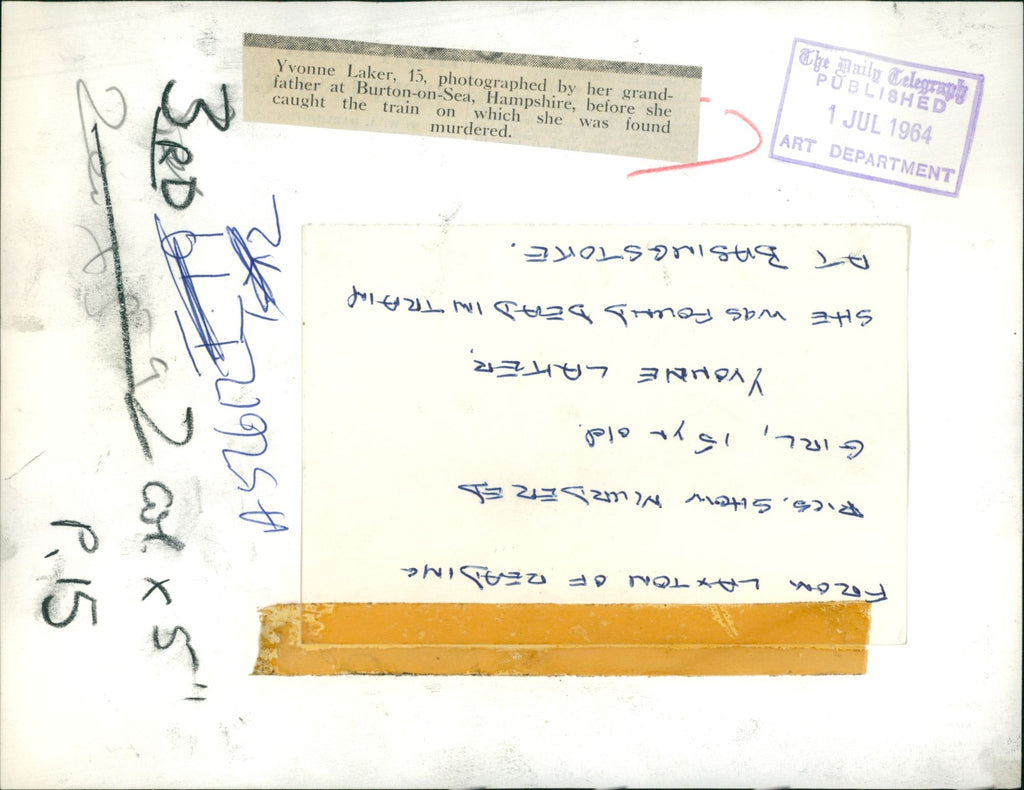 Yvonne Laker, 15, photographed by her grand-
father at Burton-on-Sea, Hampshire, before she
caught the train on which she was found
murdered.
The Daily Telegraph
PUBLISHED
1 JUL 1964
ART DEPARTMENT
3RD
2 col. x 5"
P. 15
FROM LAXTON OF READING
PICS. SHOW MURDERED
GIRL, 15 yr old.
YVONNE LAKER.
SHE WAS FOUND DEAD IN TRAIN
AT BASINGSTOKE.